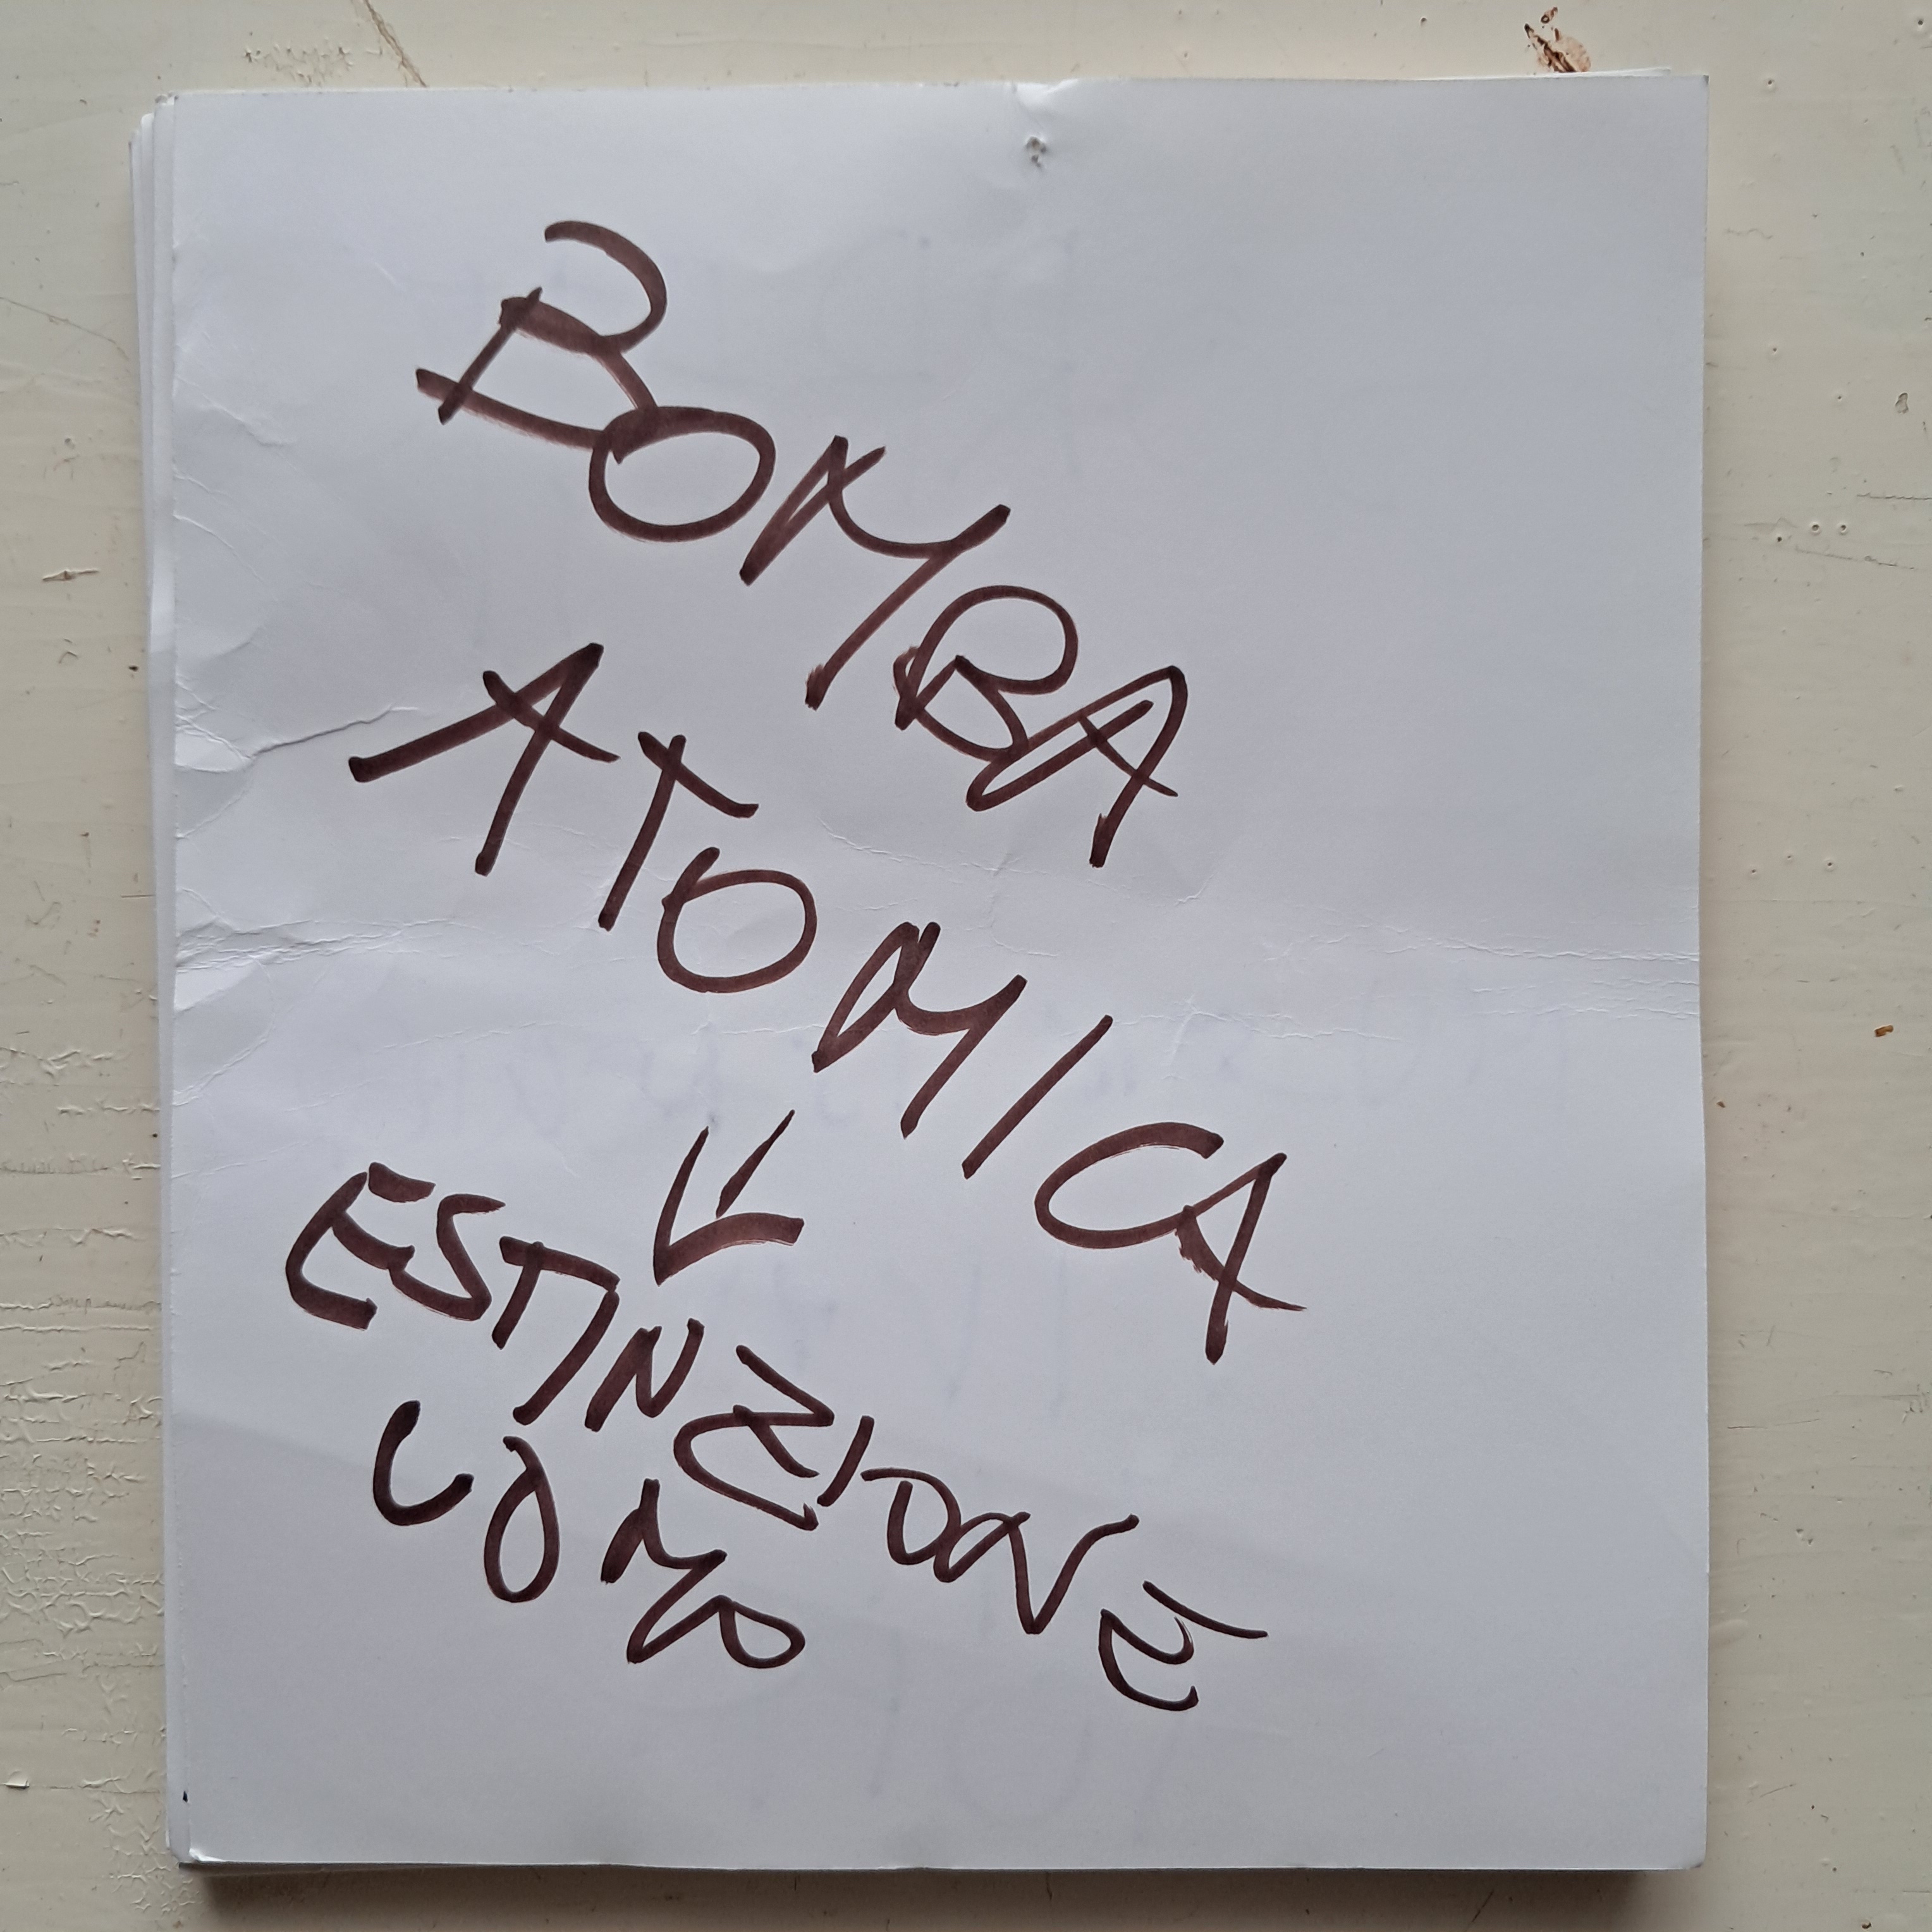 BOMBA
ATOMICA
ESTINZIONE
COMO